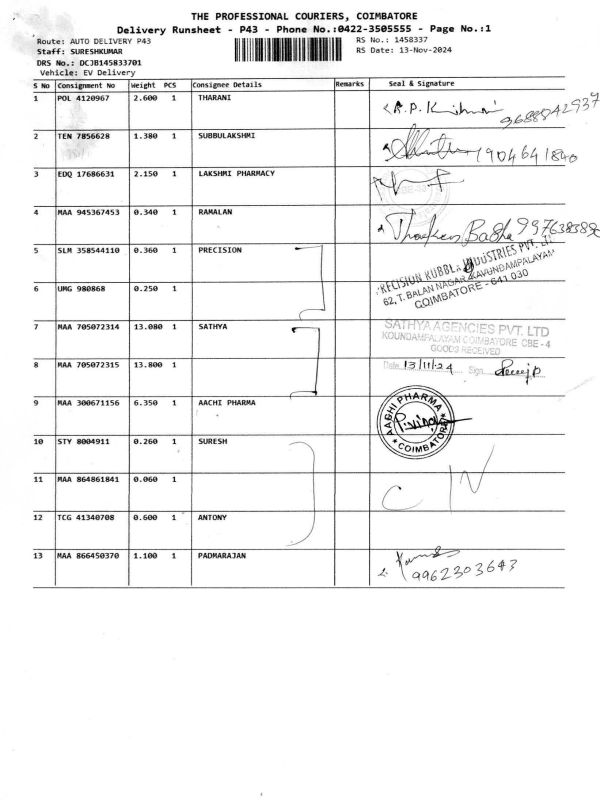 THE PROFESSIONAL COURIERS, COIMBATORE
Delivery Runsheet - P43 - Phone No.:0422-3505555 - Page No.:1
Route: AUTO DELIVERY P43
RS No.: 1458337
Staff: SURESHKUMAR
RS Date: 13-Nov-2024
DRS No.: DCJB145833701
Vehicle: EV Delivery
S No Consignment No Weight PCS Consignee Details Remarks Seal & Signature
1 POL 4120967 2.600 1 THARANI
9688842937
2 TEN 7856628 1.380 1 SUBBULAKSHMI
7904641840
3 EDQ 17686631 2.150 1 LAKSHMI PHARMACY
4 MAA 945367453 0.340 1 RAMALAN
5 SLM 358544110 0.360 1 PRECISION
PRECISION RUBBER INDUSTRIES PVT. LTD
62, T. BALAN NAGAR, KAVUNDAMPALAYAM
COIMBATORE - 641 030
6 UMG 980868 0.250 1
7 MAA 705072314 13.080 1 SATHYA
SATHYA AGENCIES PVT. LTD
KOUNDAMPALAYAM COIMBATORE CBE - 4
GOODS RECEIVED
8 MAA 705072315 13.800 1
Date 13/11/24 Sign
9 MAA 300671156 6.350 1 AACHI PHARMA
AACHI PHARMA
COIMBATORE
10 STY 8004911 0.260 1 SURESH
11 MAA 864861841 0.060 1
C IN
12 TCG 41340708 0.600 1 ANTONY
13 MAA 866450370 1.100 1 PADMARAJAN
9962303643